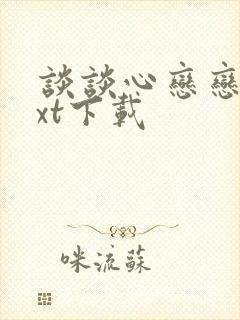 談談心戀戀
xt下載
咪流蘇